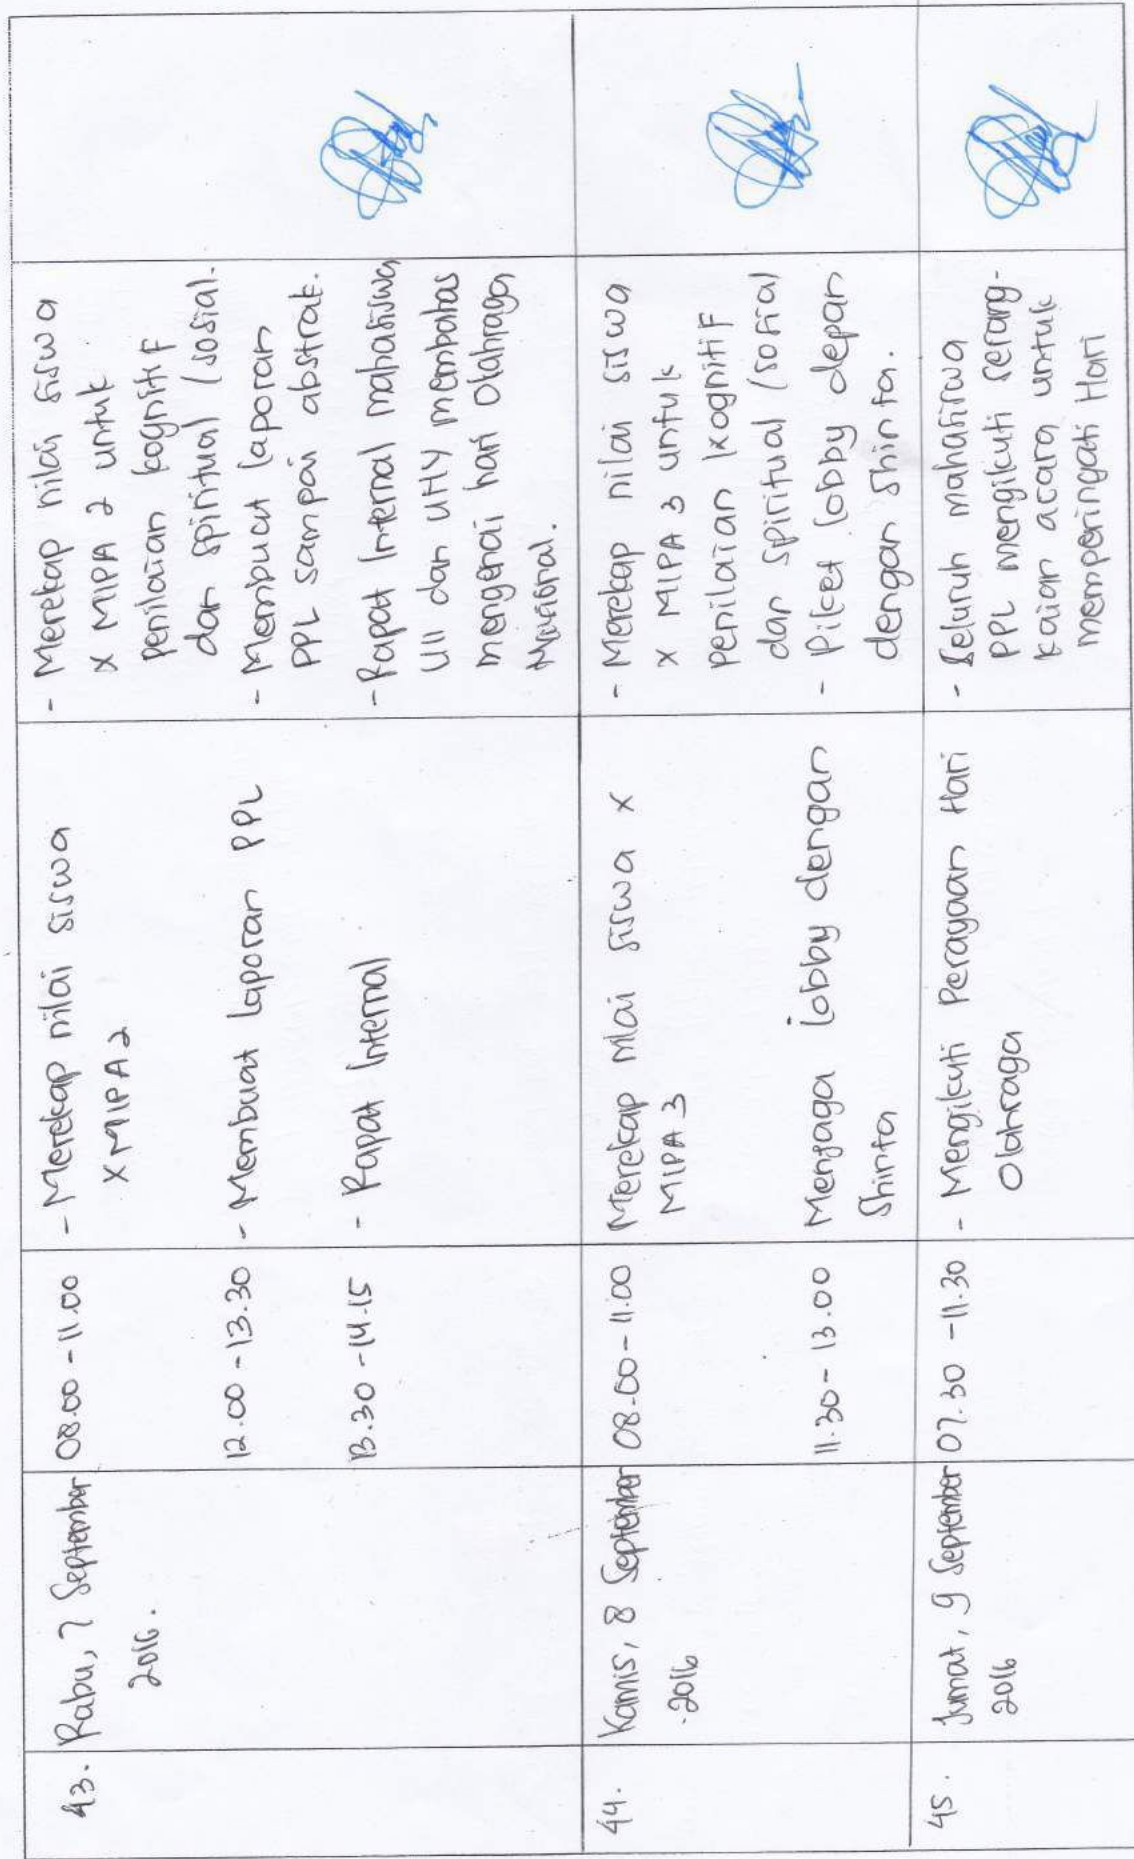 43. Rabu, 7 September
2016.
08.00 - 11.00
- Merekap nilai siswa
X MIPA 2
- Merekap nilai siswa
X MIPA 2 untuk
penilaian kognitif
dan spiritual (sosial.
12.00 - 13.30
- Membuat laporan PPL
- Membuat laporan
PPL sampai abstrak.
13.30 - 14.15
- Rapat Internal
- Rapat Internal mahasiswa
UII dan UNY membahas
mengenai hari Olahraga
Nasional.
44. Kamis, 8 September
2016
08.00 - 11.00
Merekap nilai siswa X
MIPA 3
- Merekap nilai siswa
X MIPA 3 untuk
penilaian kognitif
dan spiritual (sosial
11.30 - 13.00
Menjaga lobby dengan
Shinta
- Piket lobby depan
dengan Shinta.
45. Jumat, 9 September
2016
07.30 - 11.30
- Mengikuti Perayaan Hari
Olahraga
- Seluruh mahasiswa
PPL mengikuti serang-
kaian acara untuk
memperingati Hari